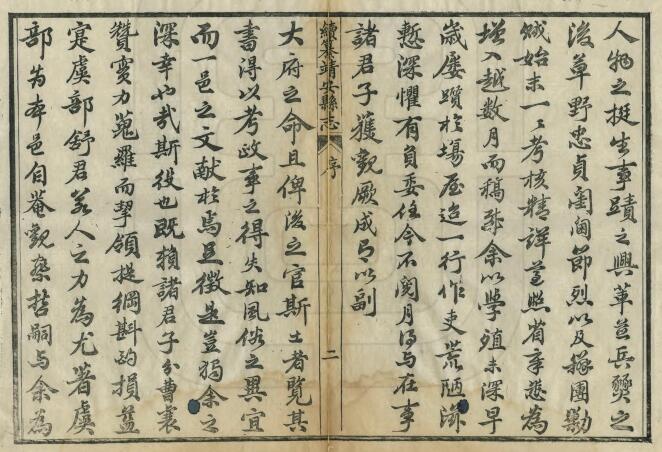 人物之挺生事蹟之興革並兵燹之
後草野忠貞閨閫節烈以及練團勦
賊始末一一考核精詳遵照省章悉為
增入越數月而稿成余以學殖未深早
歲屢躓於場屋迨一行作吏荒陋滋
慙深懼有負委任今不閱月得与在事
諸君子獲觀厥成有以副
續纂靖安縣志
序
二
大府之命且俾後之官斯土者覽其
書得以考政事之得失知風俗之異宜
而一邑之文献於焉足徵是豈獨余之
深幸也哉斯役也既賴諸君子分曹襄
贊實力蒐羅而挈領提綱斟酌損益
寔虞部舒君若人之力為尤著虞
部為本邑自菴觀察哲嗣与余為